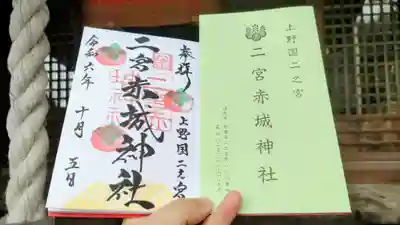 上野国二之宮
二宮赤城神社
奉拝
上野国二之宮
二宮赤城神社
令和六年 十月 五日